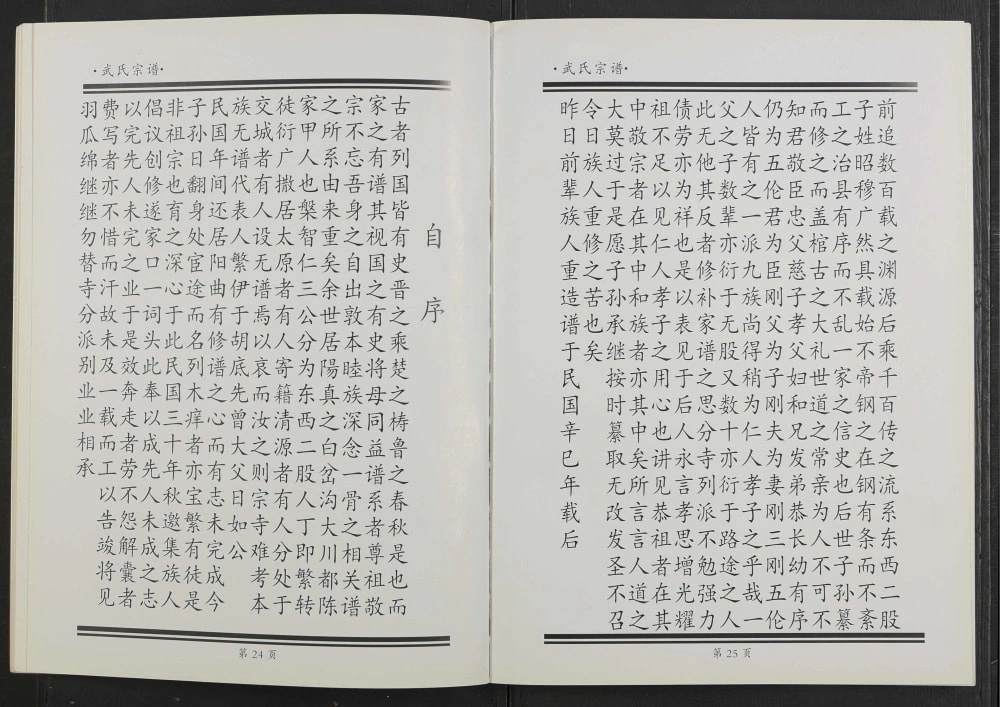 ·武氏宗谱·
自序
古者列国皆有史晋之乘楚之梼鲁之春秋是也而
家之有谱其视国之有史将母同益谱系者尊祖敬
宗不忘吾身之自出敦本睦族深念一骨之相关谱
之所系由来重矣余世居陽真之白岔沟大川都陈
家甲人也槃智仁三公分为东西二股人丁即繁转
徒衍广撒居太原者有人寄籍清源者有人分处于
交城者有人设无谱焉以哀而汝之则宗寺难考本
族无谱代表人繁伊于胡底先曾大父日如公
民国年间还居阳曲有修谱之心而有志未完成今
子孙日翻身处宦途而名列木痒者亦宝繁有徒是
非祖宗也育之深心于此民国三十年秋邀集族人
倡议创修遂家口一词头此奉以成先人未成之志
以完先人未完之业于是效奔走者劳不怨解囊者
费写者亦不惜而汗故未及一载而工以告竣将见
羽瓜绵继继勿替寺分派别业业相承
第 24 页
·武氏宗谱·
前追数百载之渊源后乘千百传之流系东西二股
子姓昭穆广然具载始不帝钢之在钢有条而不紊
工之治县有序而不乱一家之信史也后世子孙纂
而修之而盖棺古之大礼世道之常亲为人不可不
知君敬臣忠父慈子孝父妇和兄发弟恭长幼有序
仍为五伦君为臣刚父为子刚夫为妻刚三刚五伦
人皆有之一派九族尚得稍为仁人孝子之乎哉一
父之子数辈亦衍于无股又数十亦衍于路途之人
此无他其反者修补家谱之思分寺列派不勉强力
债劳亦为祥也是以表见于后人永言孝思增光耀
祖不足以见仁人孝子之用心也讲见恭祖者在其
中敬宗者在其中和族者亦其中矣所言言人道之
大莫过于是愿子孙承继按时纂取无改发圣不召
令日族人重修之苦也矣
昨日前辈族人重造谱于民国辛巳年载后
第 25 页